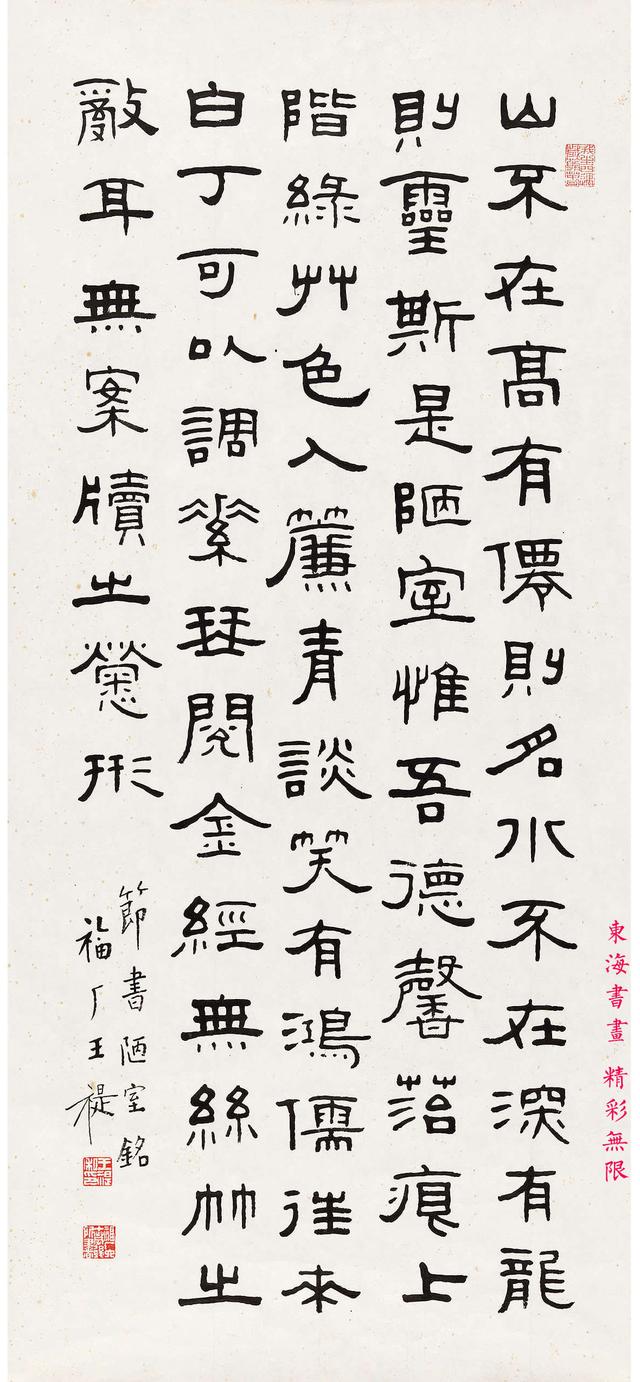 山不在髙有僊則名水不在深有龍
則靈斯是陋室惟吾德馨菭痕上
階綠艸色入簾青談笑有鴻儒往來
白丁可以調素琴閱金經無絲竹之
亂耳無案牘之勞形
節書陋室銘
福厂王禔
東海書畫 精彩無限